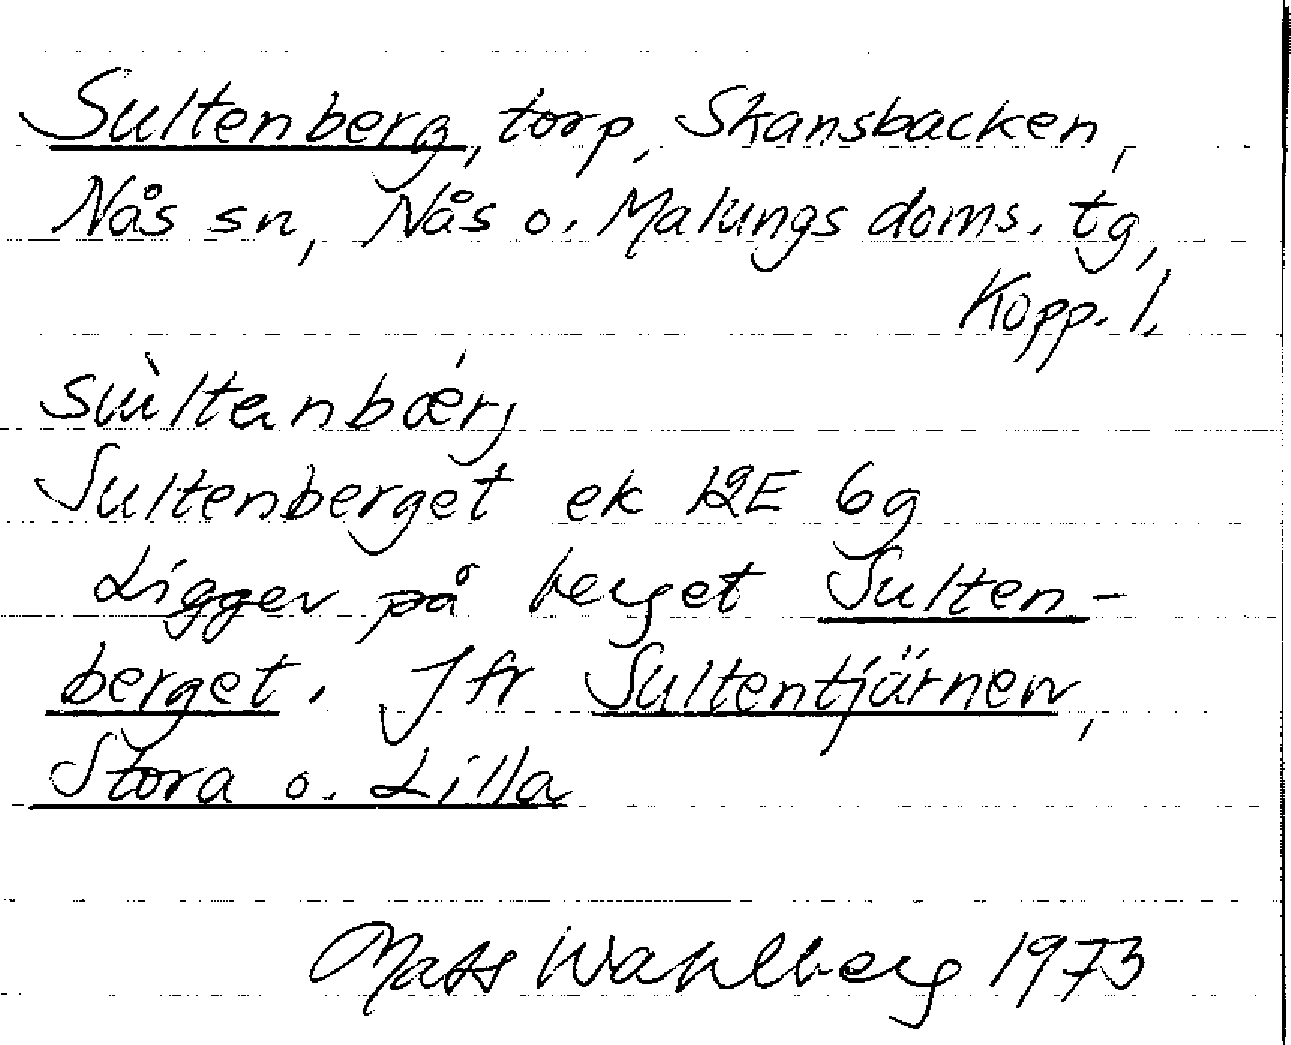 Sultenberg, torp, Skansbacken,
Nås sn, Nås o. Malungs doms. tg,
Kopp. l.
Sultenberget ek 12E 6g
Ligger på berget Sulten-
berget. Jfr Sultentjärnen,
Stora o. Lilla
Mats Wahlberg 1973